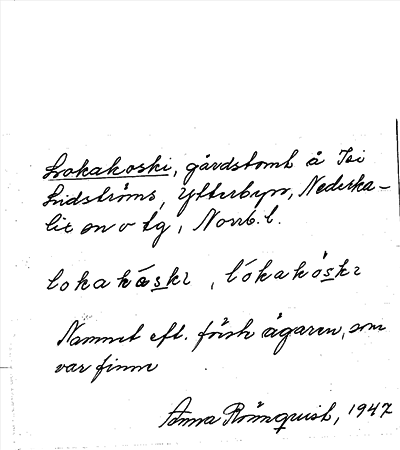 Lokakoski, gårdstomt å Isi
Lidströms, Ytterbyn, Nederka-
lix sn o tg, Norrb. l.
lokakåski, lókakóski
Namnet eft. förste ägaren, som
var finne
Anna Rönnquist, 1947